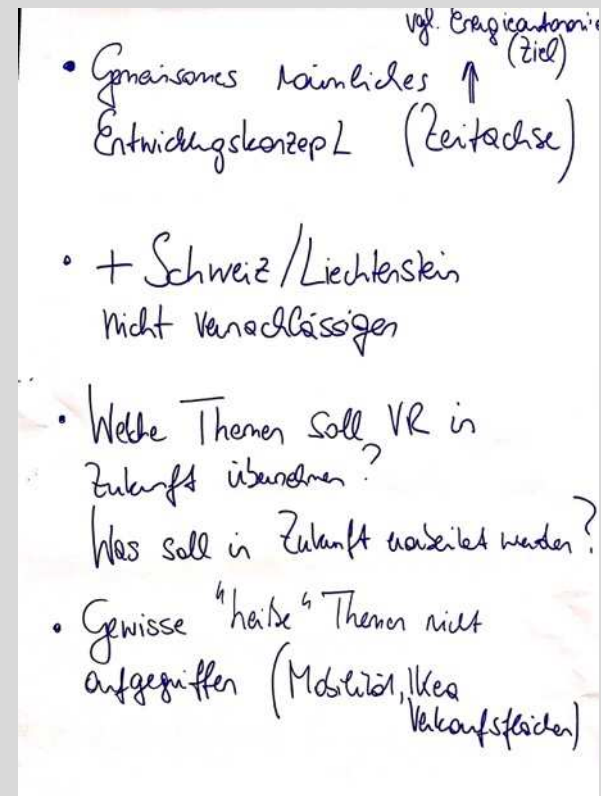 vgl. Energieautonomie
(Ziel)
• Gemeinsames räumliches ⇑
Entwicklungskonzept (Zeitachse)
• + Schweiz/Liechtenstein
nicht vernachlässigen
• Welche Themen soll VR in
Zukunft übernehmen?
Was soll in Zukunft erarbeitet werden?
• Gewisse "heiße" Themen nicht
aufgegriffen (Mobilität, Ikea
Verkaufsflächen)